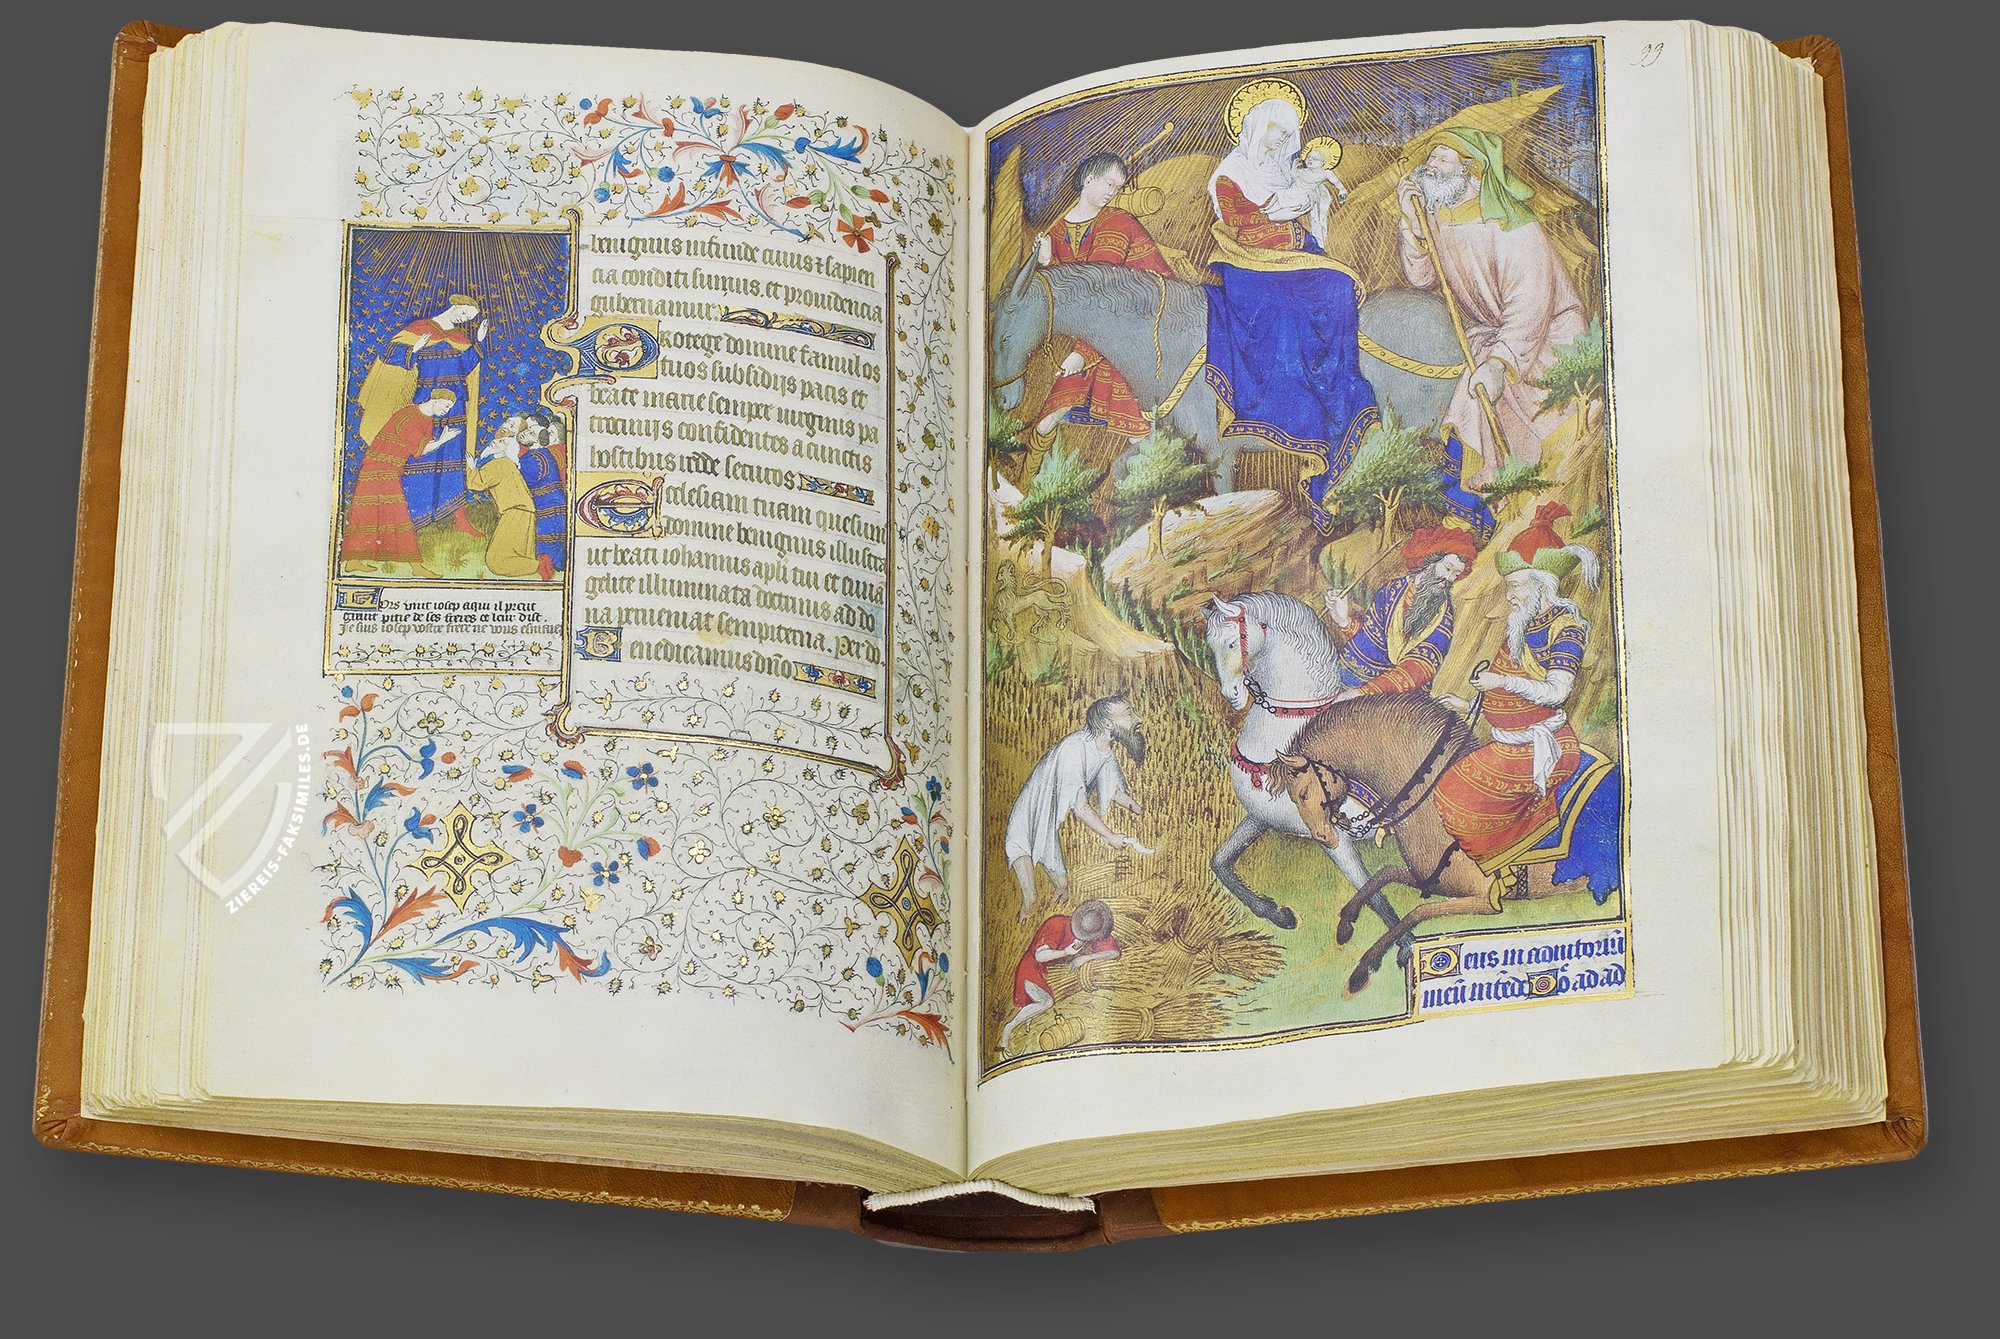 benignus infunde cuius ⁊ sapien
cia conditi sumus. et providencia
gubernamur.
Protege domine famulos
tuos subsidiis pacis et
beate marie semper virginis pa
trociniis confidentes a cunctis
hostibus redde securos
Ecclesiam tuam quesum
domine benignus illustra
ut beati iohannis apli tui et euuā
geliste illuminata doctrinis ad do
na perveniat sempiterna. Per do.
Benedicamus dño
Lors vint iosep a qui il preut
grant pitie de ses freres et leur dist.
Je suis iosep vostre frere ne vous
99
Deus in adiutoriū
meū intēde Dñe ad ad
ZIEREIS-FAKSIMILES.DE